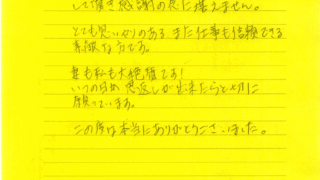 して頂き感謝の念に堪えません。
とても思いやりのある また仕事も信頼できる
素敵な方です。
妻も私も大絶賛です!
いつの日か 恩返しが出来たらと切に
願っています。
この度は本当にありがとうございました。